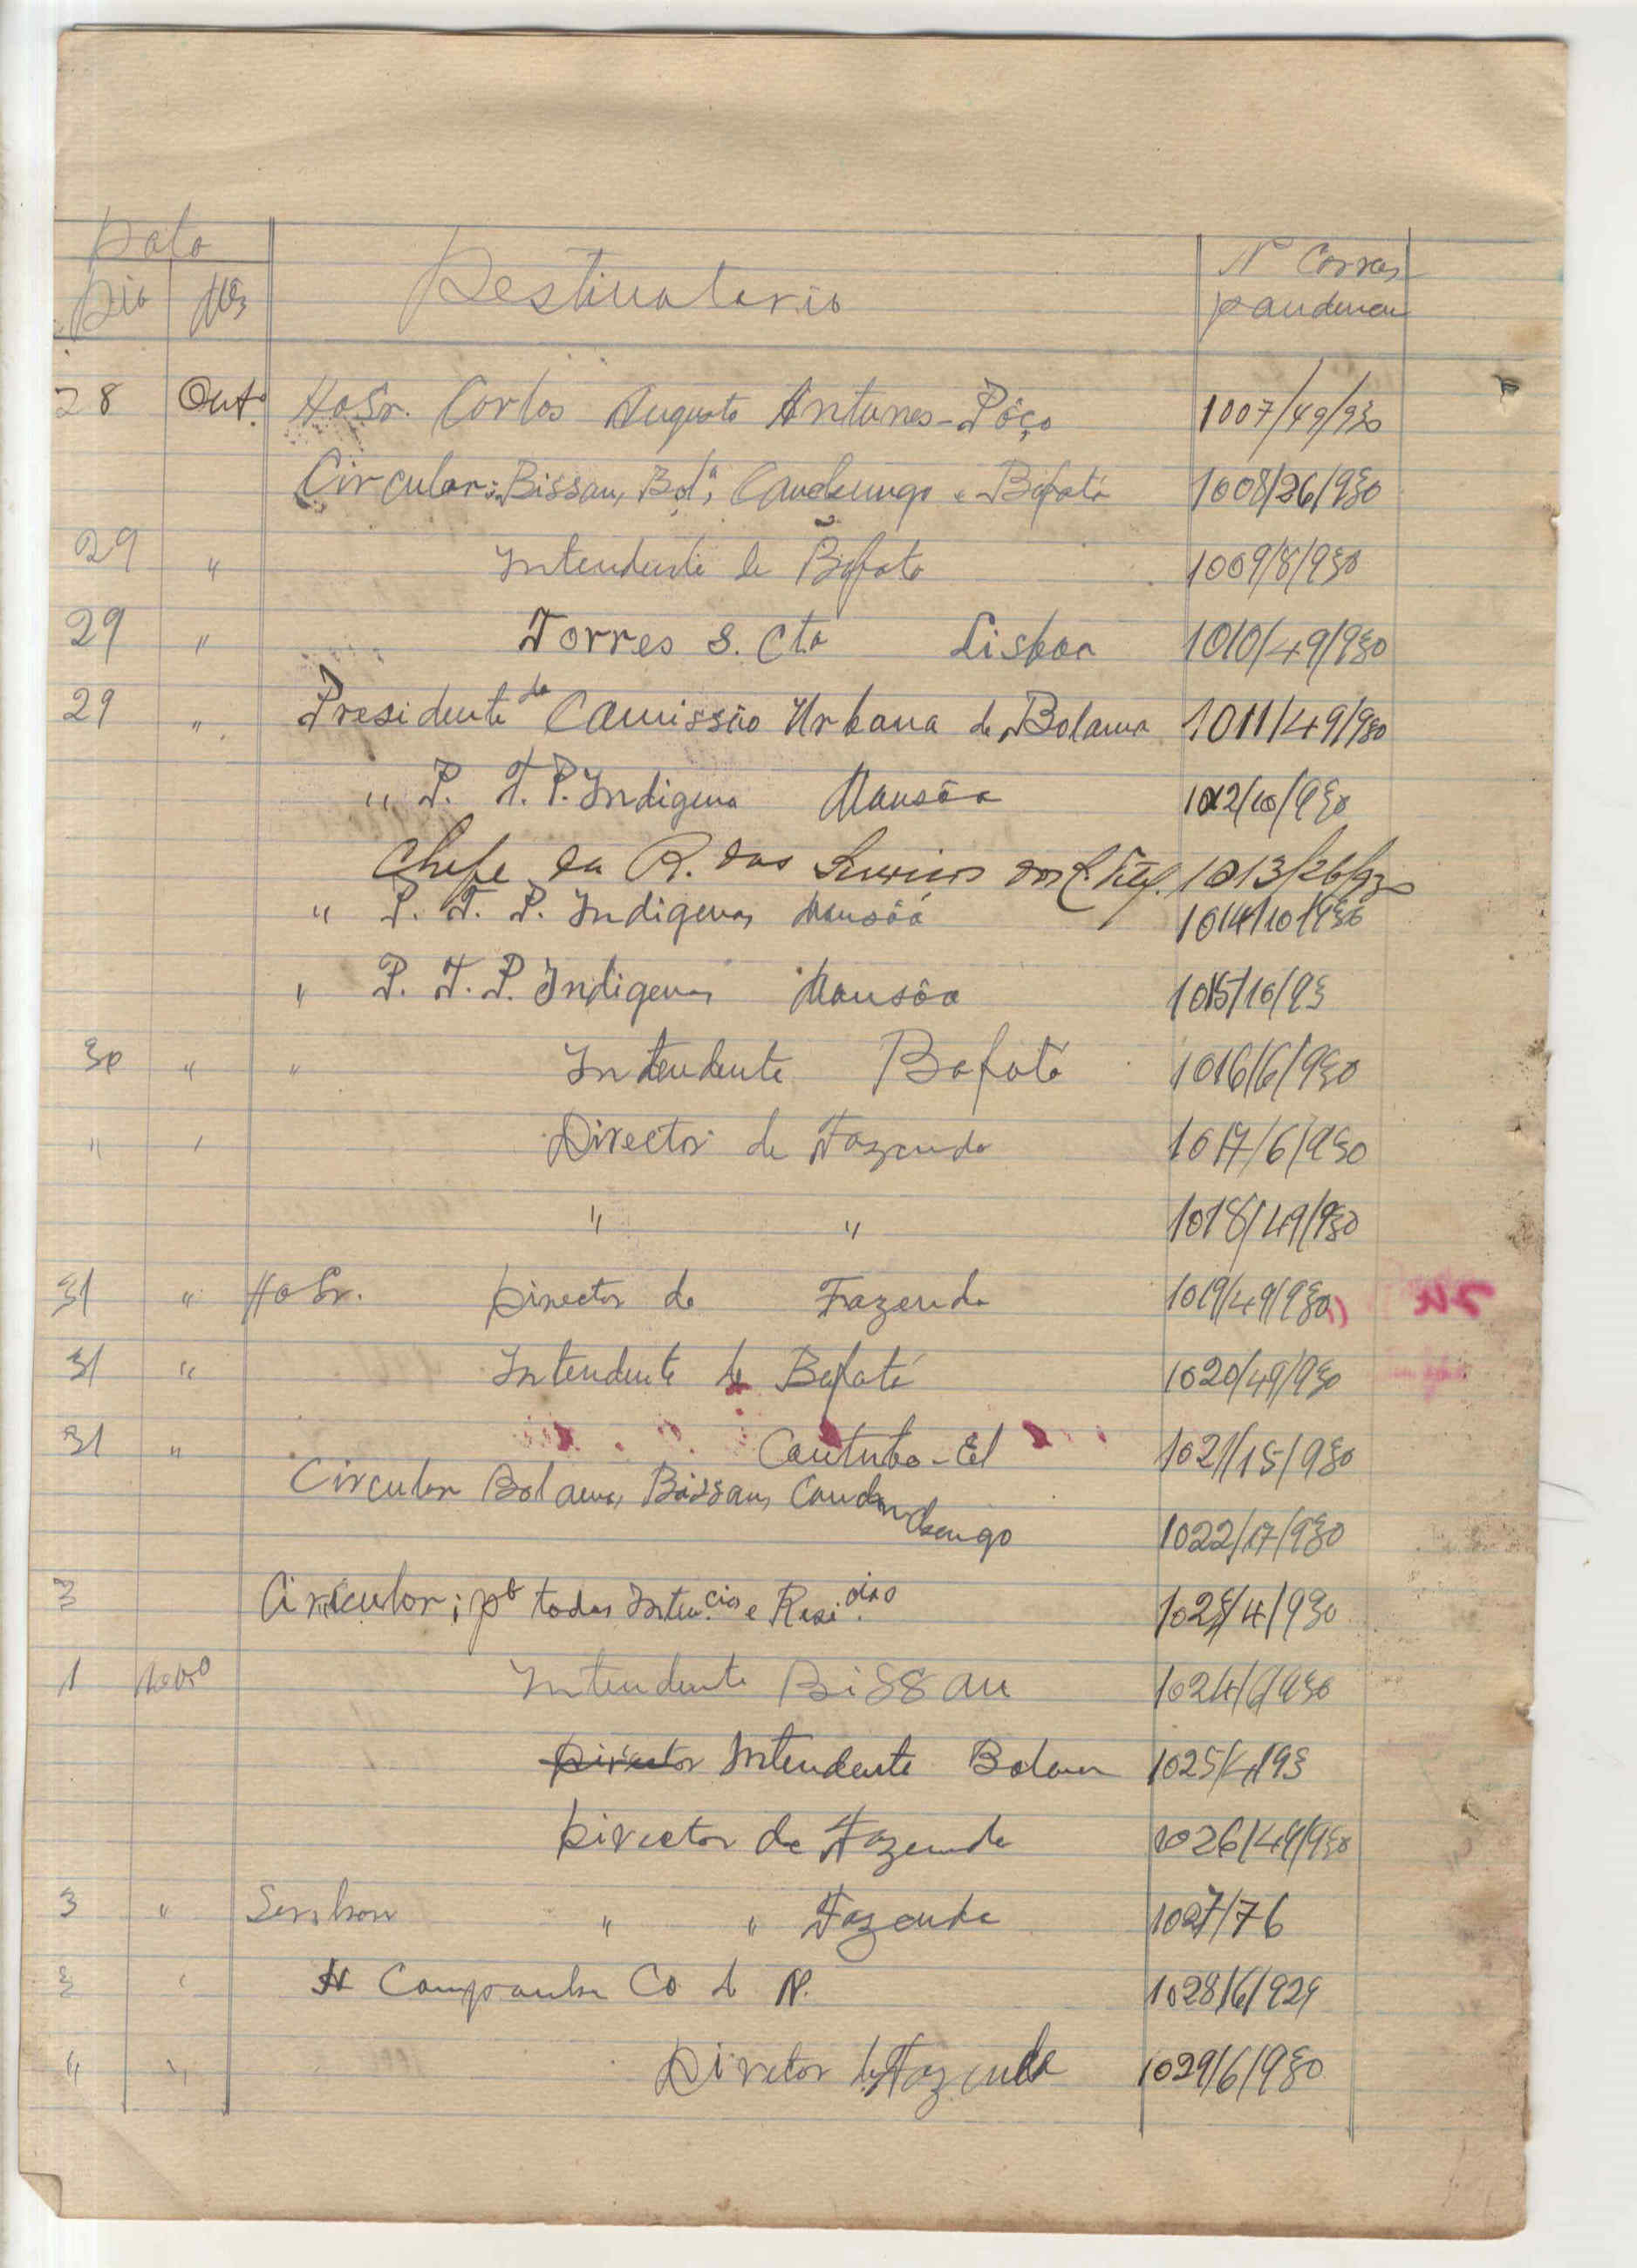 Data
Dia Mês Destinatario Nº Corres
pondencia
28 Outº. Ao Sr. Carlos Augusto Antunes - Pôço 1007/49/930
Circular: Bissau, Bolª, Canchungo e Bafatá 1008/26/930
29 " Intendente de Bafata 1009/8/930
29 " Torres & Cta Lisboa 1010/49/930
29 " Presidente da Comissão Urbana de Bolama 1011/49/930
" P. T. P. Indigena Mansôa 1012/10/930
Chefe da R. dos Serviços 1013/26/930
" P. T. P. Indigenas Mansôa 1014/10/930
" P. T. P. Indigenas Mansôa 1015/10/93
30 " " Intendente Bafatá 1016/6/930
" " Director de Fazenda 1017/6/930
" " 1018/49/930
31 " Ao Sr. Director de Fazenda 1019/49/930
31 " Intendente de Bafatá 1020/49/930
31 " Contubo-El 1021/15/930
Circular Bolama, Bissau, Canchungo
1022/17/930
3 Circular; pª todas Inten.cias e Resi.cias 1023/4/930
1 Novº Intendente Bissau 1024/6/930
Director Intendente Bolama 1025/4/93
Director de Fazenda 1026/49/930
3 " Senhor " " Fazenda 1027/76
3 " A Companhia Co d N. 1028/6/929
" " Diretor de Fazenda 1029/6/930